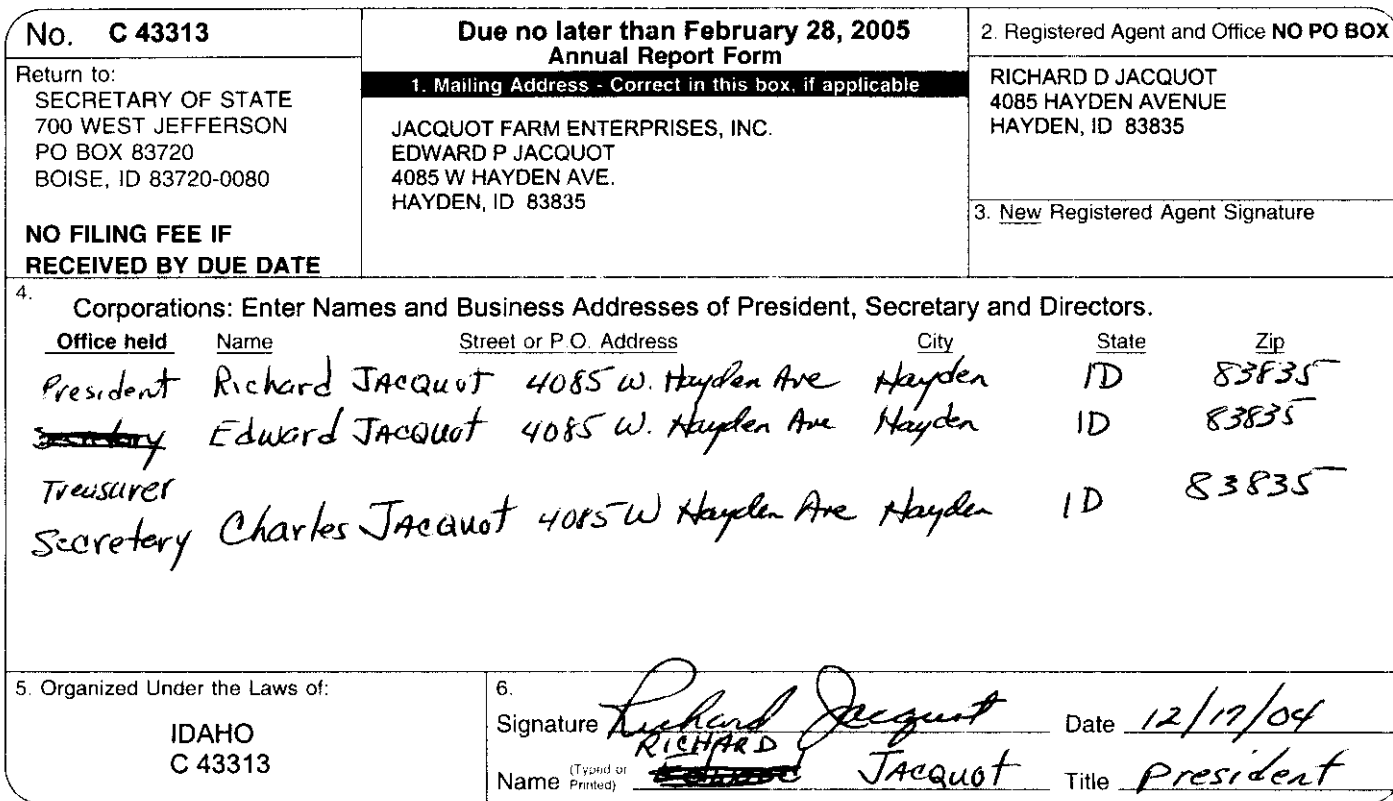 No. C 43313
Return to:
SECRETARY OF STATE
700 WEST JEFFERSON
PO BOX 83720
BOISE, ID 83720-0080
NO FILING FEE IF
RECEIVED BY DUE DATE
Due no later than February 28, 2005
Annual Report Form
1. Mailing Address - Correct in this box, if applicable
JACQUOT FARM ENTERPRISES, INC.
EDWARD P JACQUOT
4085 W HAYDEN AVE.
HAYDEN, ID 83835
2. Registered Agent and Office NO PO BOX
RICHARD D JACQUOT
4085 HAYDEN AVENUE
HAYDEN, ID 83835
3. New Registered Agent Signature
4. Corporations: Enter Names and Business Addresses of President, Secretary and Directors.
Office held Name Street or P.O. Address City State Zip
President Richard JACQUOT 4085 W. Hayden Ave Hayden ID 83835
Secretary Edward JACQUOT 4085 W. Hayden Ave Hayden ID 83835
Treasurer
Secretery Charles JACQUOT 4085 W Hayden Ave Hayden ID 83835
5. Organized Under the Laws of:
IDAHO
C 43313
6.
Signature Richard Jacquot Date 12/17/04
Name (Typed or Printed) RICHARD JACQUOT Title President